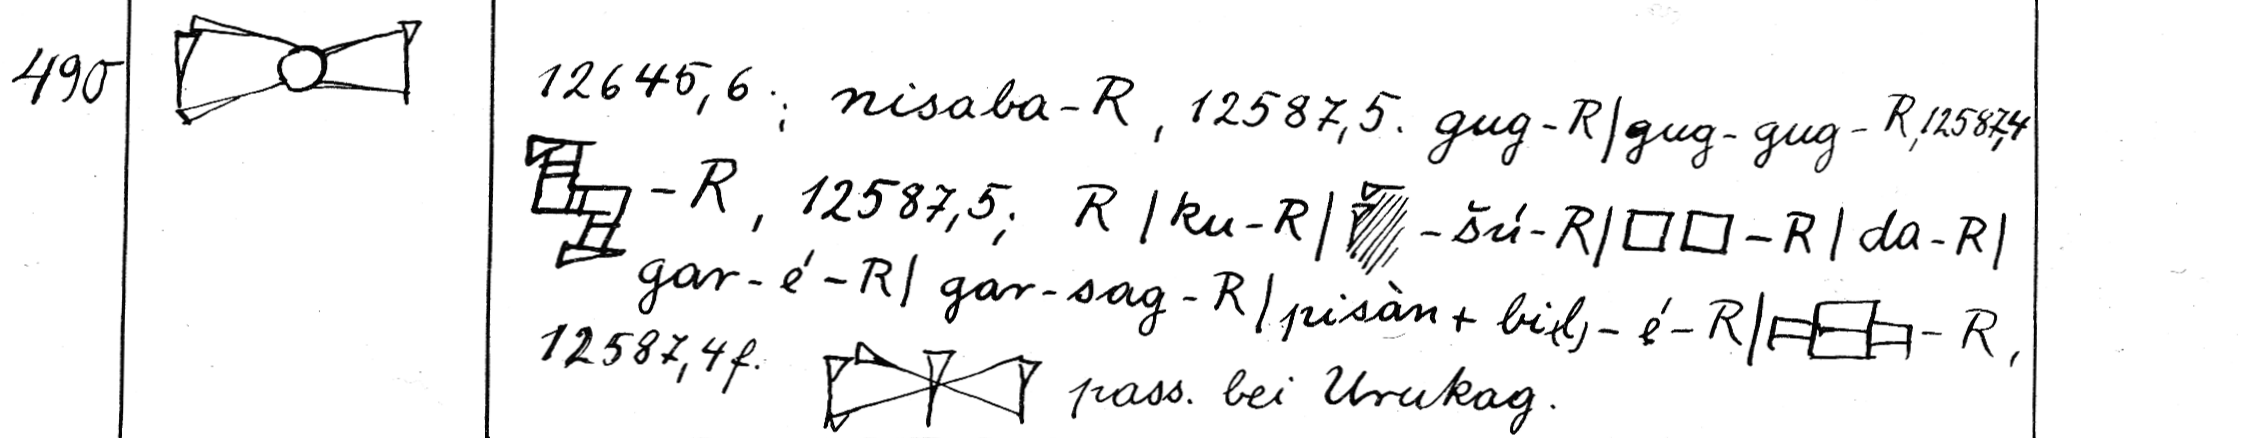 490
12645,6.; nisaba-R, 12587,5. gug-R|gug-gug-R,12587,4
-R, 12587,5; R|ku-R| -šú-R| -R|da-R|
gar-é-R|gar-sag-R|pisàn+bi(l)-é-R| -R,
12587,4f. pass. bei Urukag.